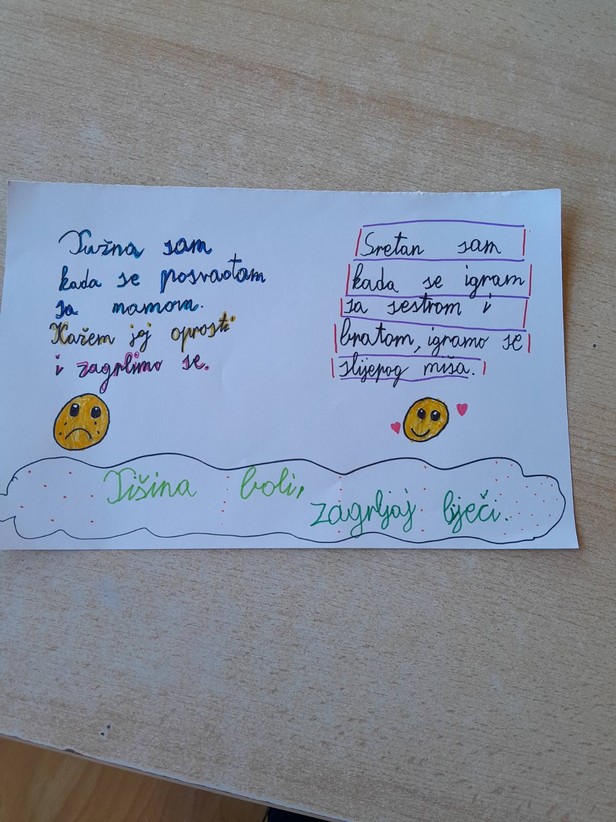 Tužna sam
kada se posvađam
sa mamom.
Kažem joj oprosti
i zagrlimo se.
Sretan sam
kada se igram
sa sestrom i
bratom, igramo se
slijepog miša.
Tišina boli,
zagrljaj liječi.